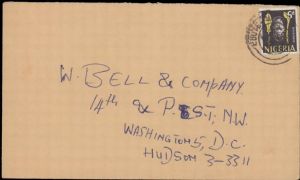 5d
NIGERIA
W. BELL & COMPANY
14th & P. ST, N.W.
WASHINGTON 5, D.C.
HUDSON 3-3311